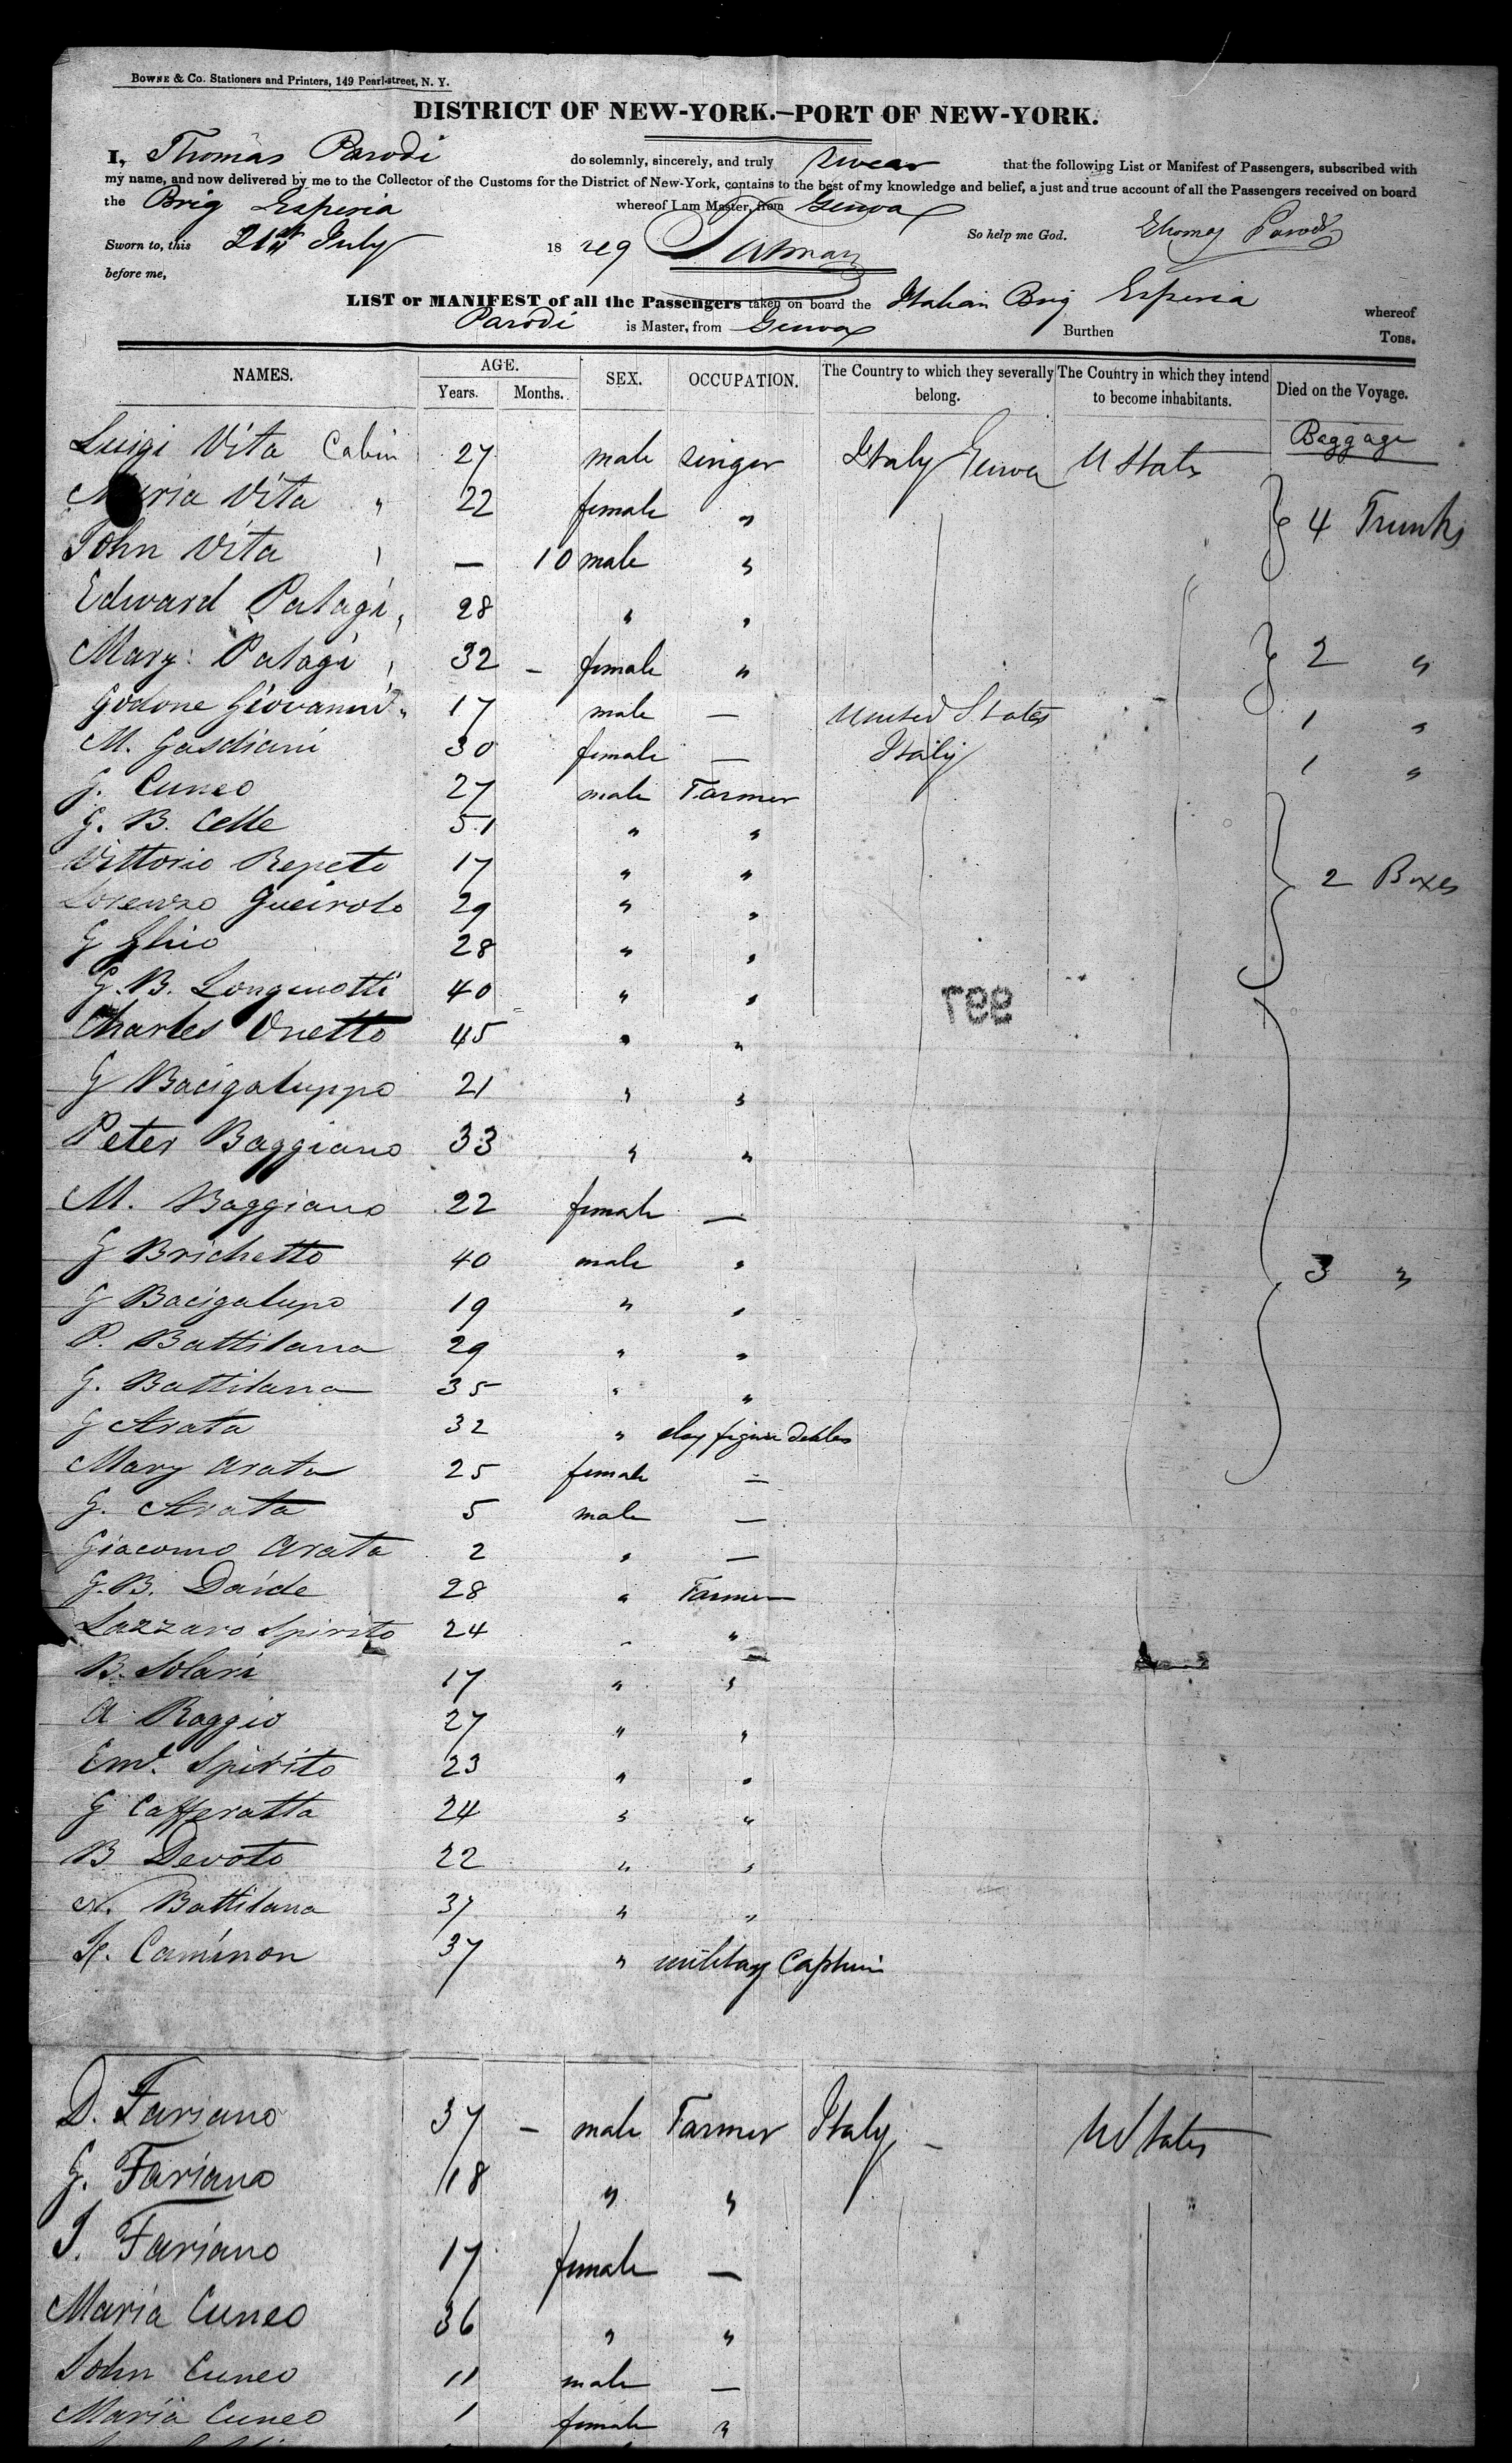 BOWNE & Co. Stationers and Printers, 149 Pearl-street, N. Y.
DISTRICT OF NEW-YORK.—PORT OF NEW-YORK.
I, Thomas Parodi do solemnly, sincerely, and truly swear that the following List or Manifest of Passengers, subscribed with
my name, and now delivered by me to the Collector of the Customs for the District of New-York, contains to the best of my knowledge and belief, a just and true account of all the Passengers received on board
the Brig Esperia whereof I am Master, from Genoa
Sworn to, this 21st July 18 So help me God. Thomas Parodi
before me,
LIST or MANIFEST of all the Passengers taken on board the Italian Brig Esperia whereof
Parodi is Master, from Genoa Burthen Tons.
NAMES. AGE. Years. Months. SEX. OCCUPATION. The Country to which they severally belong. The Country in which they intend to become inhabitants. Died on the Voyage.
Baggage
Luigi Vita Cabin 27 male singer Italy Genoa U States
Maria Vita " 22 female " 4 Trunks
John Vita " — 10 male "
Edward Patagi " 28 " "
Mary Patagi " 32 — female " 2 "
Godone Giovanni " 17 male — United States 1 "
M. Gasdiani 30 female — Italy 1 "
G. Cuneo 27 male Farmer
G. B. Celle 51 " "
Vittorio Repeto 17 " " 2 Boxes
Lorenzo Gueirolo 29 " "
G Ghio 28 " "
G. B. Longinotti 40 " "
887
Charles Onetto 45 " "
G Bacigaluppo 21 " "
Peter Baggiano 33 " "
M. Baggiano 22 female —
G Brichetto 40 male " 3 "
G Bacigalupo 19 " "
P. Battilana 29 " "
G. Battilana 35 " "
G Arata 32 " clay figure dealer
Mary Arata 25 female —
G. Arata 5 male —
Giacomo Arata 2 " —
G. B. Daide 28 " Farmer
Lazzaro Spirito 24 " "
B. Solari 17 " "
A Raggio 27 " "
Eml. Spirito 23 " "
G Cafferatta 24 " "
B Devoto 22 " "
N. Battilana 37 " "
Caminon 37 " military Captain
D. Fariano 37 — male Farmer Italy — U States
G. Fariano 18 " "
J. Fariano 17 female —
Maria Cuneo 36 " "
John Cuneo 11 male —
Maria Cuneo 1 female "